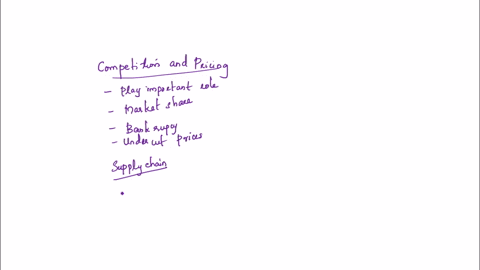 Competition and Pricing
- Play important role
- Market share
- Bankrupcy
- Undercut prices
Supply chain